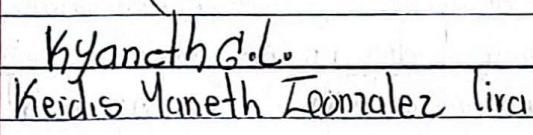 Kyaneth G.L.
Keidis Yaneth Gonzalez lira